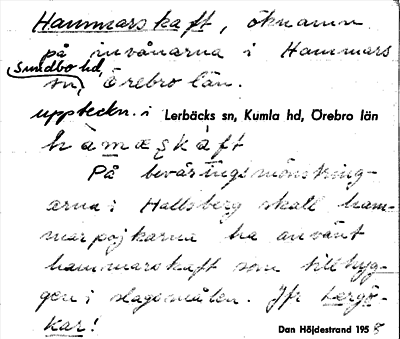 Hammarskaft, öknamn
på invånarna i Hammars
Sundbo hd,
sn, Örebro län.
uppteckn. i Lerbäcks sn, Kumla hd, Örebro län
hàmaskáft
På beväringsmönstring-
arna i Hallsberg skall ham-
marpojkarna ha använt
hammarskaft som tillhyg-
gen i slagsmålen. Jfr Lergö-
kar!
Dan Höjdestrand 1958